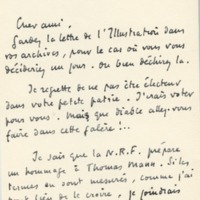 Cher ami.
Gardez la lettre de l'Illustration dans
vos archives, pour le cas où vous vous
décideriez un jour. Ou bien déchirez-la.
Je regrette de ne pas être électeur
dans votre petite patrie. J'irais voter
pour vous. Mais que diable allez-vous
faire dans cette galère!...
Je sais que la N.R.F. prépare
un hommage à Thomas Mann. Si les
termes au sont mesurés, comme j'ai
lieu de le croire, je joindrais